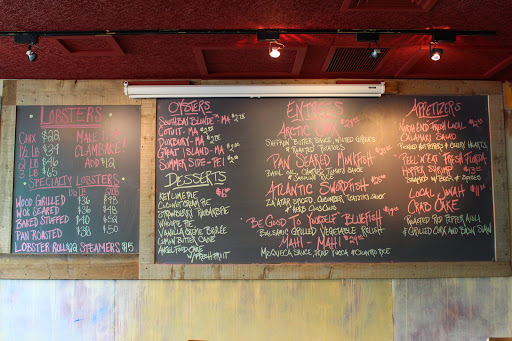 LOBSTERS
CHIX $22
1½ LB $34
2 LB $46
3 LB $65
MAKE IT A CLAMBAKE!
ADD $12
SPECIALTY LOBSTERS
WOOD GRILLED $36 $48
WOK SEARED $38 $48
BAKED STUFFED $40 $52
PAN ROASTED $38 $50
LOBSTER ROLL STEAMERS $15
OYSTERS
COTUIT - MA
DUXBURY - MA
GREAT ISLAND - MA
SUMMER SIDE - PEI
DESSERTS
KEY LIME PIE
COCONUT CREAM PIE
STRAWBERRY RHUBARB PIE
WHOOPIE PIE
VANILLA CREME BRULEE
LEMON BUTTER CAKE
ANGEL FOOD CAKE
W/ FRESH FRUIT
ENTREES
ARCTIC
SAFFRON BUTTER SAUCE, WILTED GREENS
& ROASTED POTATOES
PAN SEARED MONKFISH
BASIL OIL, CHARRED TOMATO SAUCE
& SAFFRON RICE
ATLANTIC SWORDFISH
ZA'ATAR SPICED, CUCUMBER YOGURT SAUCE
& HERB COUSCOUS
"BE GOOD TO YOURSELF" BLUEFISH
BALSAMIC GRILLED VEGETABLE
MAHI - MAHI
MOQUECA SAUCE, FRIED YUCA & CILANTRO RICE
APPETIZERS
CALAMARI SALAD
PEEL N' EAT FRESH FLORIDA
HOPPER SHRIMP
LOCAL JONAH
CRAB CAKE
ROASTED RED PEPPER AIOLI
& GRILLED CORN AND BEAN SALAD